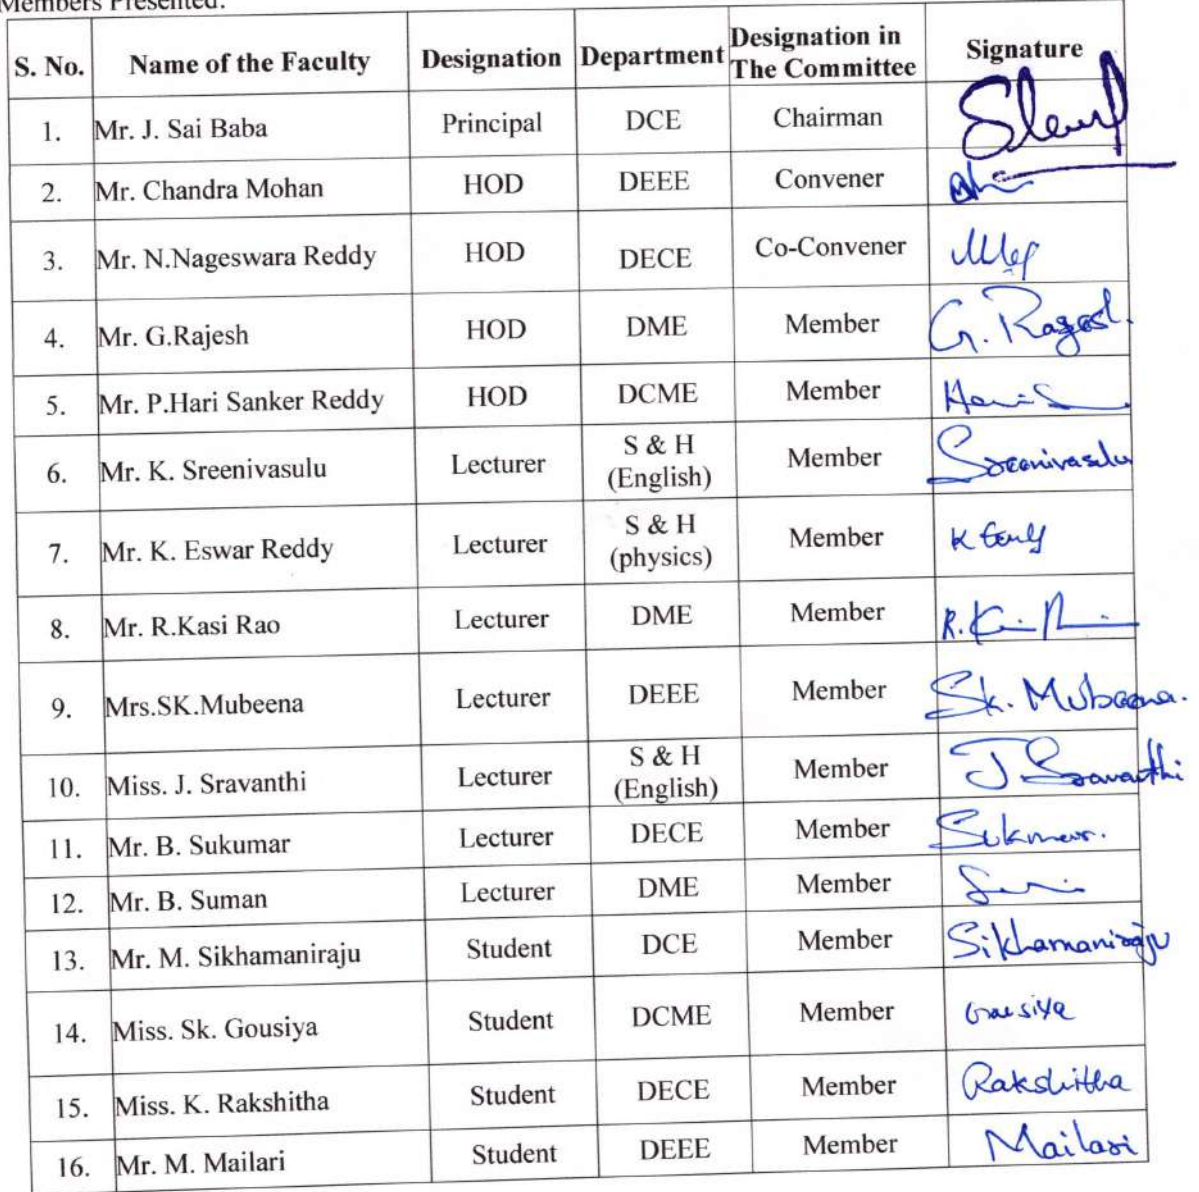 Members Presented:
S. No. Name of the Faculty Designation Department Designation in The Committee Signature
1. Mr. J. Sai Baba Principal DCE Chairman
2. Mr. Chandra Mohan HOD DEEE Convener
3. Mr. N.Nageswara Reddy HOD DECE Co-Convener
4. Mr. G.Rajesh HOD DME Member G. Ragesh.
5. Mr. P.Hari Sanker Reddy HOD DCME Member
6. Mr. K. Sreenivasulu Lecturer S & H (English) Member Sreenivasulu
7. Mr. K. Eswar Reddy Lecturer S & H (physics) Member
8. Mr. R.Kasi Rao Lecturer DME Member
9. Mrs.SK.Mubeena Lecturer DEEE Member Sk. Mubeena.
10. Miss. J. Sravanthi Lecturer S & H (English) Member J Sravanthi
11. Mr. B. Sukumar Lecturer DECE Member
12. Mr. B. Suman Lecturer DME Member
13. Mr. M. Sikhamaniraju Student DCE Member Sikhamaniraju
14. Miss. Sk. Gousiya Student DCME Member Gousiya
15. Miss. K. Rakshitha Student DECE Member Rakshitha
16. Mr. M. Mailari Student DEEE Member Mailari